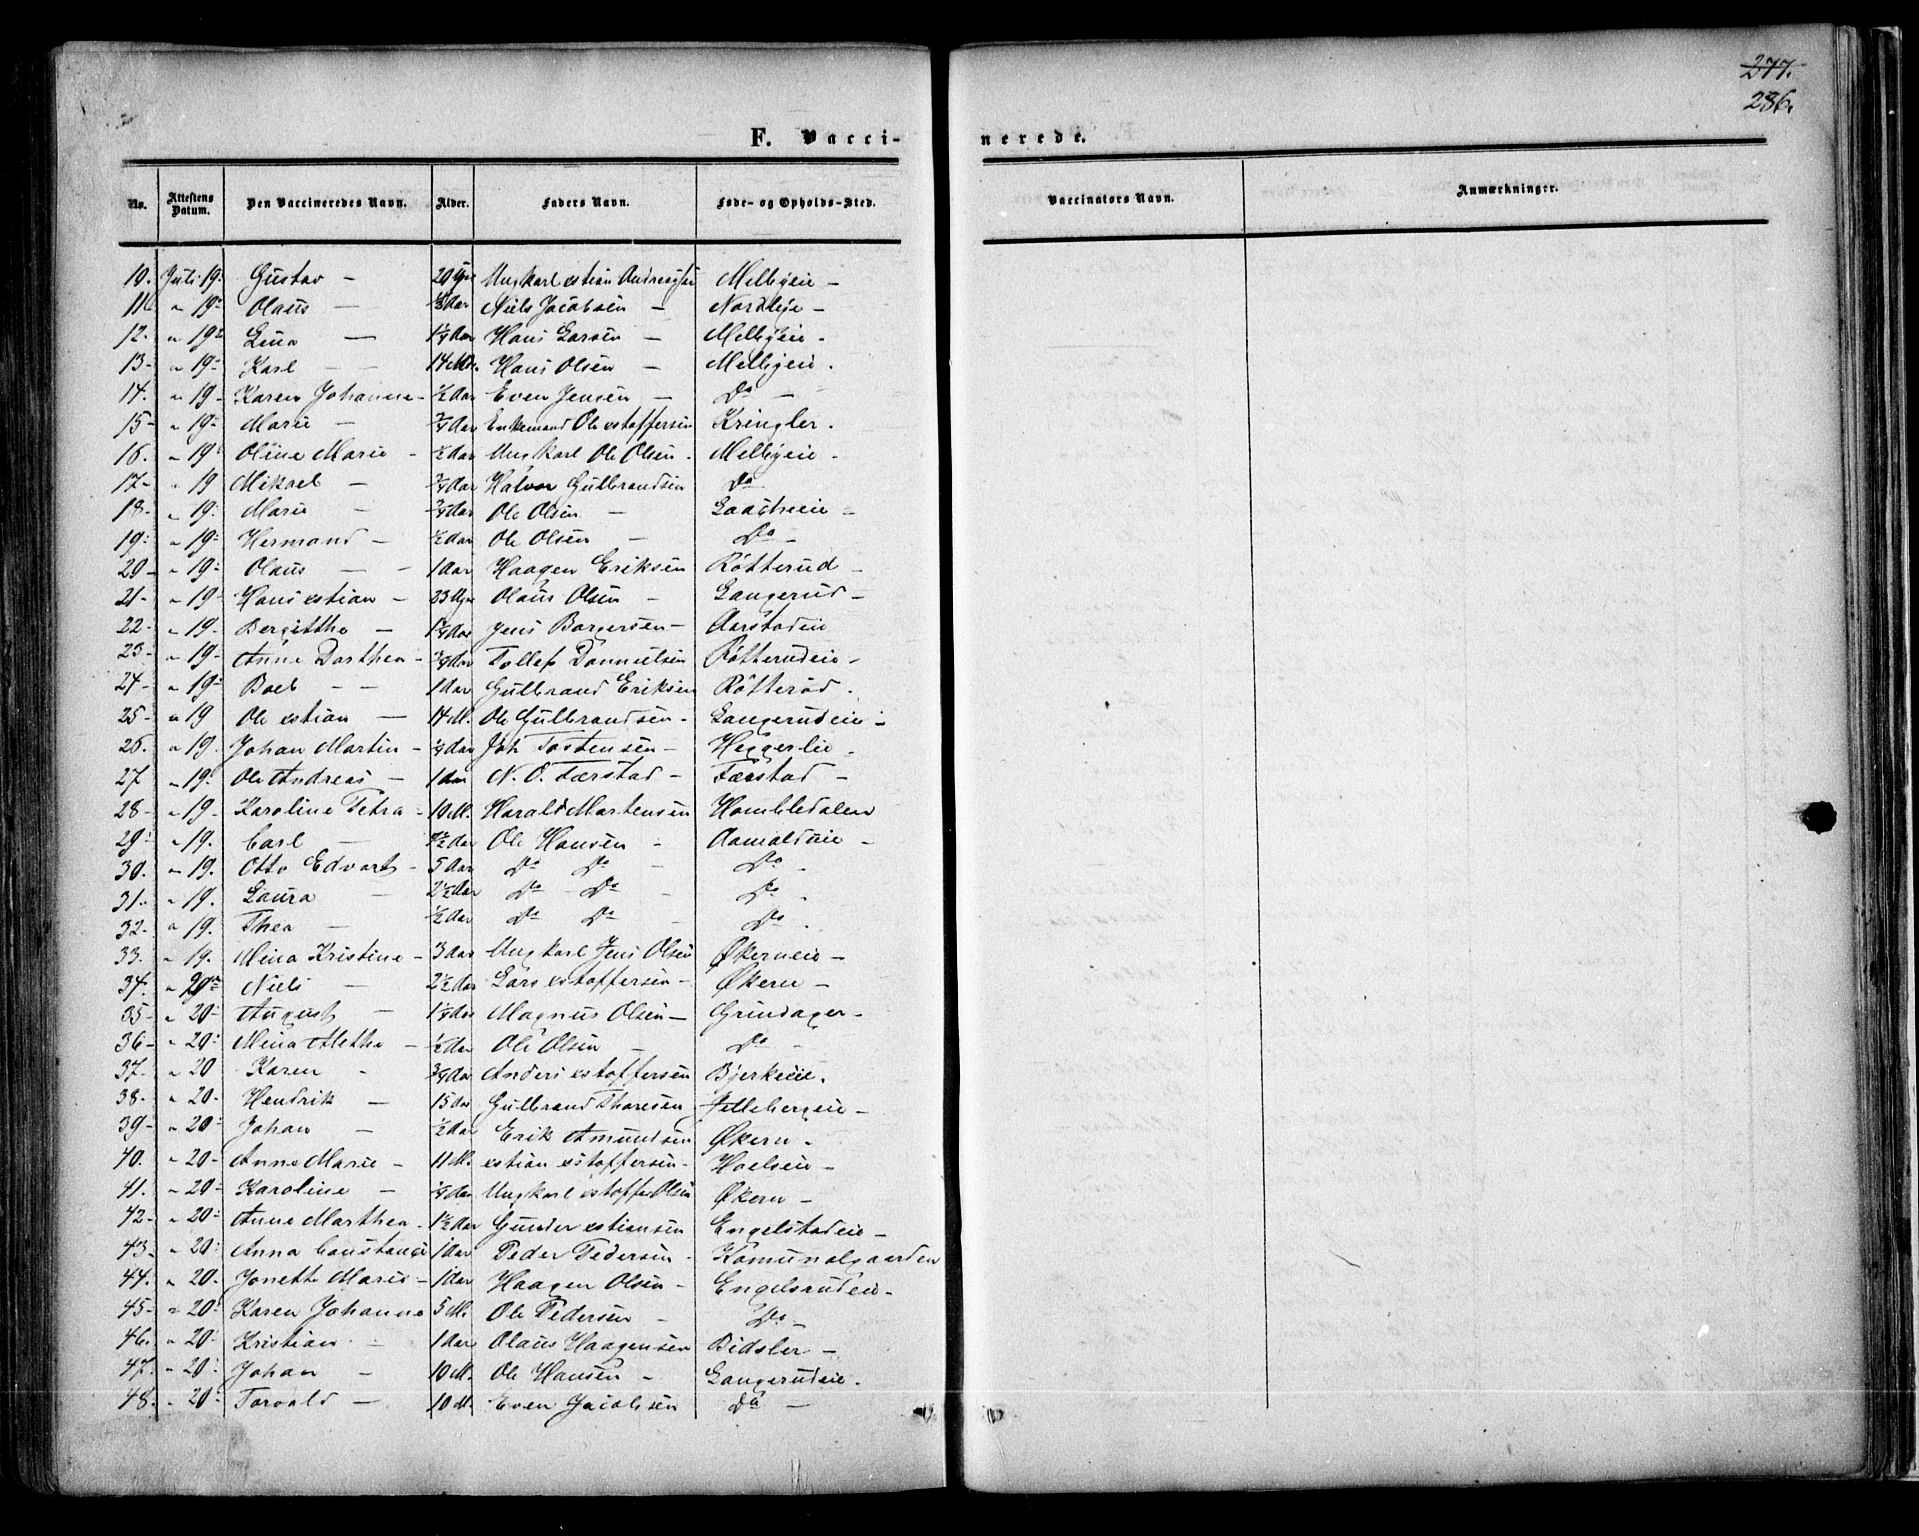 277.
286.
F. Vacci-
nerede.
No. Attestens Datum. Den Vaccineredes Navn. Alder. Faders Navn. Føde- og Opholds-Sted. Vaccinators Navn. Anmærkninger.
10. Juli 19. Gustav - 20 Uger Ungkarl xstian Andreassen Melbyeie -
11. " 19. Olaus - Aar Niels Jacobsen - Nordbyeie -
12. " 19. Lina - 1¼ Aar Hans Larsen - Melbyeie -
13. " 19. Karl - 14 M. Hans Olsen - Melbyeie.
14. " 19. Karen Johanne - ½ Aar Even Jensen - Do -
15. " 19. Marie - ¾ Aar Enkemand Ole xstoffersen Kringler.
16. " 19. Oline Marie - ½ Aar Ungkarl Ole Olsen. Melbyeie.
17. " 19 Mikael - ¾ Aar Halvor Gulbrandsen Do
18. " 19. Marie - ¾ Aar Ole Olsen -
19. " 19. Hermand - ½ Aar Ole Olsen - Do -
20. " 19. Olaus - 1 Aar Haagen Eriksen Røtterud -
21. " 19. Hans xstian - 23 Uger Olaus Olsen - Langerud -
22. " 19. Bergitthe - 1¼ Aar Jens Borgersen - Aarstadeie
23. " 19. Anne Dorthea - ¾ Aar Tollef Dannielsen Røtterudeie -
24. " 19. Boel - - 1 Aar Gulbrand Eriksen Røtterud.
25. " 19 Ole xstian - 14 M. Ole Gulbrandsen - Langerudeie -
26. " 19. Johan Martin - ¼ Aar Joh. Tostensen - Heggerleie.
27 " 19. Ole Andreas - 1 Aar N. O. Færstad - Færstad -
28 - " 19. Karoline Petra - 10 M. Harald Martensen Hambledalen
29. " 19. Carl - Aar Ole Hansen - Aamoldeie -
30. " 19. Otto Edvart - 5 Aar Do Do - Do -
31. " 19. Laura - 2½ Aar Do - Do - Do -
32. " 19. Thea - ½ Aar Do Do - Do.
33. " 19. Mina Kristine - 3 Aar Ungkarl Jens Olsen Økerneie -
34. " 20. Niels - 2½ Aar Lars xstoffersen - Økern -
35 - " 20. August - 1¼ Aar Magnus Olsen - Grindager -
36 - " 20. Mina Methe - ½ Aar Ole Olsen - Do -
37. " 20 Karen - ¾ Aar Anders xstoffersen Bjerkeeie.
38. " 20. Hendrik - 15 Aar Gulbrand Thoresen Jellebergeie -
39 - " 20. Johan - ½ Aar Erik Amundsen Økern -
40. " 20 - Anne Marie - 11 M. xstian xstoffersen - Hoelseie -
41. " 20. Karoline - ¼ Aar Ungkarl xstoffer Olsen Økern -
42 - " 20. Anne Marthea - 1½ Aar Gunder xstiansen Engelstadeie -
43. " 20. Anna Constance 1 Aar Peder Pedersen - Komunalgaarden
44. " 20. Jonette Marie - 1 Aar Haagen Olsen - Engelsrudeie -
45 - " 20. Karen Johanne 5 M. Ole Pedersen - Do -
46. " 20. Kristian - 1 Aar Olaus Haagensen Bidsler -
47. " 20. Johan - 10 M. Ole Hansen - Langerudeie.
48. " 20. Torvald - 10 M. Even Jacobsen Do -